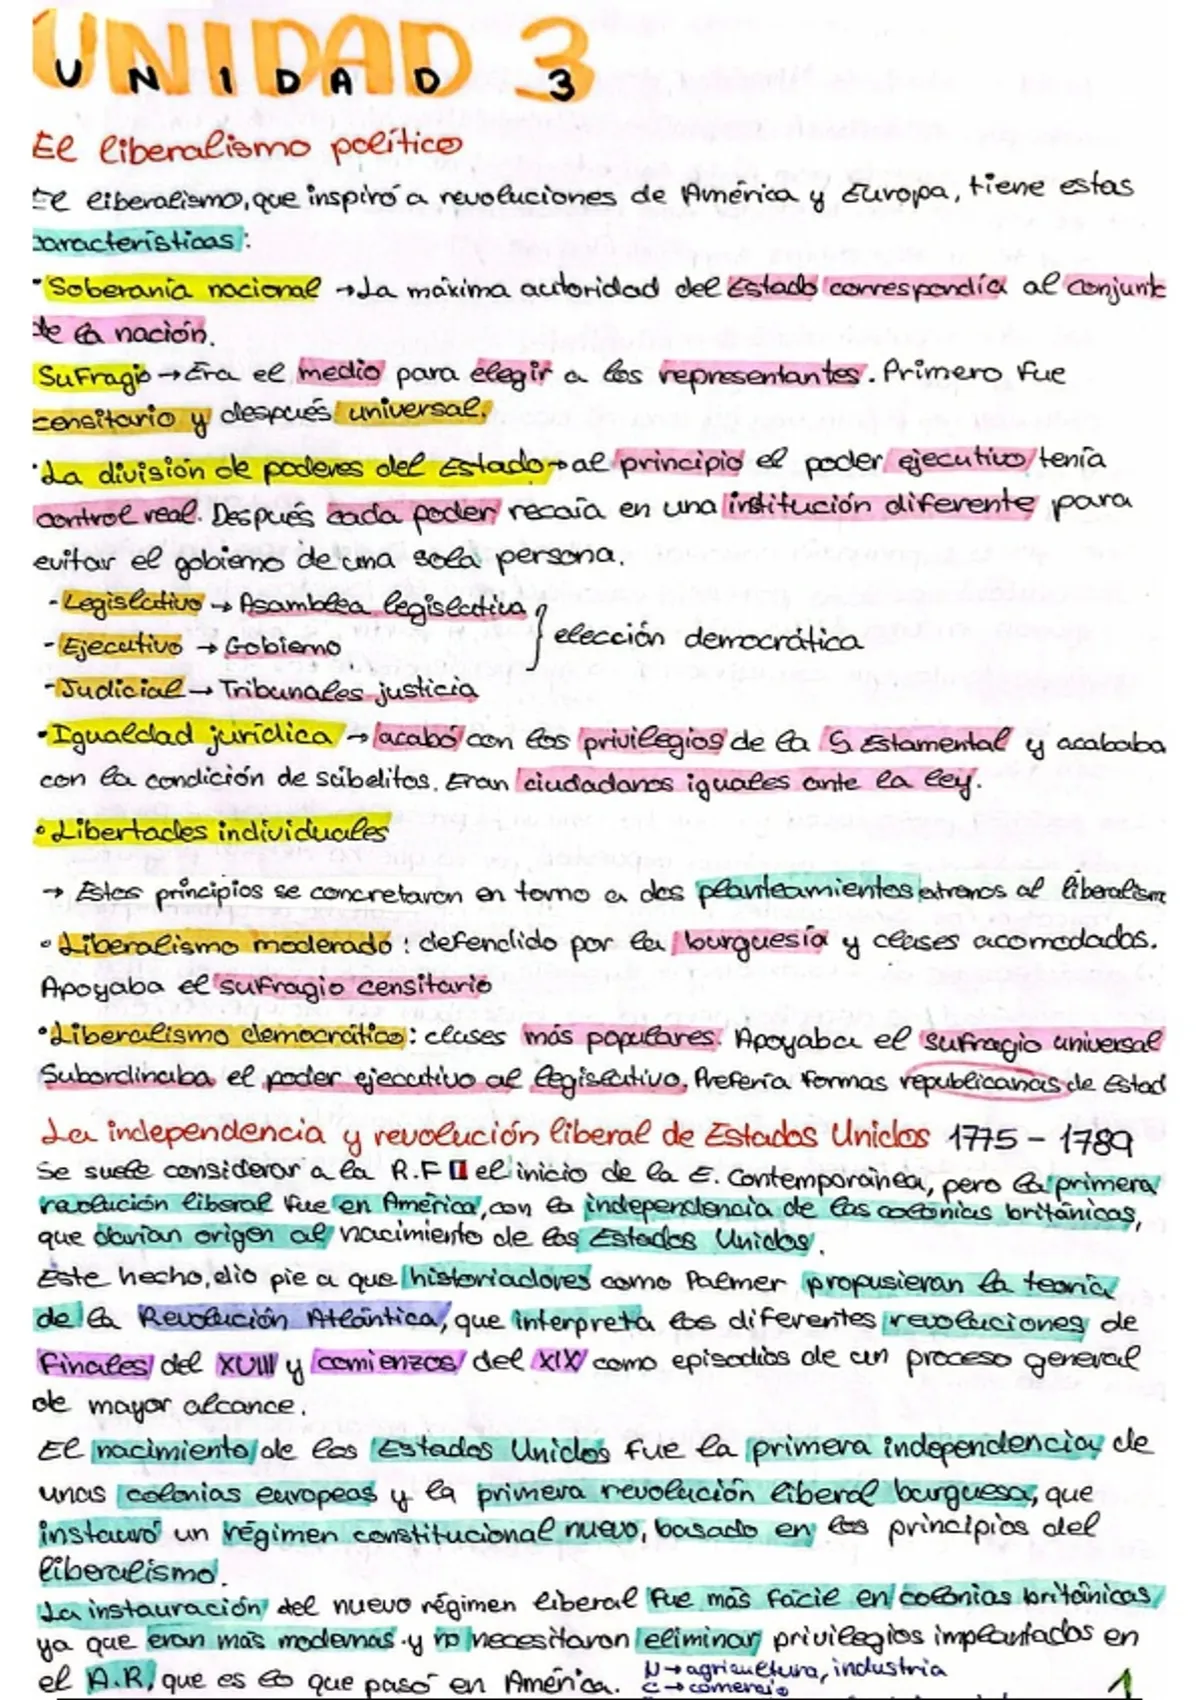 UNIDAD 3
UNIDAD 3
El liberalismo político
El liberalismo, que inspiró a revoluciones de América y Europa, tiene estas
características:
·Soberanía nacional →La máxima autoridad del Estado correspondía al conjunto
de la nación.
Sufragio → Era el medio para elegir a los representantes. Primero fue
censitario y después universal.
·La división de poderes del Estado → al principio el poder ejecutivo tenía
control real. Después cada poder recaía en una institución diferente para
evitar el gobierno de una sola persona.
- Legislativo → Asamblea legislativa
- Ejecutivo → Gobierno } elección democrática
- Judicial → Tribunales justicia
·Igualdad jurídica → acabó con los privilegios de la S. Estamental y acababa
con la condición de súbditos. Eran ciudadanos iguales ante la ley.
· Libertades individuales
→ Estos principios se concretaron en torno a dos planteamientos al liberalism
· Liberalismo moderado: defendido por la burguesía y clases acomodadas.
Apoyaba el sufragio censitario
·Liberalismo democrático: clases más populares. Apoyaba el sufragio universal
Subordinaba el poder ejecutivo al legislativo. Prefería formas republicanas de Estad
La independencia y revolución liberal de Estados Unidos 1775 - 1789
Se suele considerar a la R.F el inicio de la E. Contemporánea, pero la primera
revolución liberal fue en América, con la independencia de las colonias británicas,
que darían origen al nacimiento de los Estados Unidos.
Este hecho, dio pie a que historiadores como Palmer propusieran la teoría
de la Revolución Atlántica, que interpreta las diferentes revoluciones de
finales del XVIII y comienzos del XIX como episodios de un proceso general
de mayor alcance.
El nacimiento de los Estados Unidos fue la primera independencia de
unas colonias europeas y la primera revolución liberal burguesa, que
instauró un régimen constitucional nuevo, basado en los principios del
liberalismo.
La instauración del nuevo régimen liberal fue más fácil en colonias británicas
ya que eran más modernas y no necesitaron eliminar privilegios implantados en
el A.R, que es lo que pasó en América. N→agricultura, industria
C→comercio
1